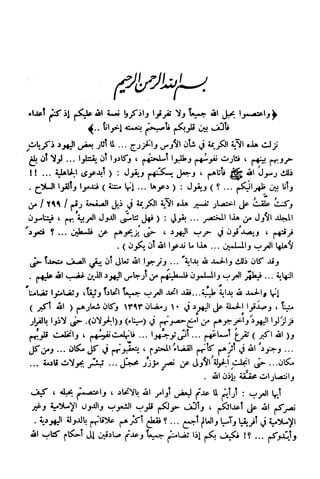 بسم الله الرحمن الرحيم
﴿ واعتصموا بحبل الله جميعاً ولا تفرقوا واذكروا نعمة الله عليكم إذ كنتم أعداء
فألف بين قلوبكم فأصبحتم بنعمته إخواناً .. ﴾
نزلت هذه الآية الكريمة في شأن الأوس والخزرج ... لما أثار بعض اليهود ذكريات
حروبهم بينهم ، فثارت نفوسهم وطلبوا أسلحتهم ، وكادوا أن يقتتلوا ... لولا أن بلغ
ذلك رسول الله ﷺ فأتاهم ، وجعل يسكنهم ويقول : ( أبدعوى الجاهلية ... !!
وأنا بين ظهرانيكم ... ؟ ) ويقول : ( دعوها ... إنها منتنة ) فندموا وألقوا السلاح .
وكنت علقت على اختصار تفسير هذه الآية الكريمة في ذيل الصفحة رقم / ٢٩٩ / من
المجلد الأول من هذا المختصر ... بقولي : ( فهل تتأسى الدول العربية بهم ، فيتناسون
فرقتهم ، ويصدقون في حرب اليهود ، حتى يزيحوهم عن فلسطين ... ؟ فتعود
لأهلها العرب والمسلمين ... هذا ما ندعوا الله أن يكون ) .
وقد كان ذلك والحمد لله بداية ... ونرجوا الله تعالى أن يبقي الصف متحداً حتى
النهاية ... فيطهر العرب والمسلمون فلسطينهم من أرجاس اليهود الذين غضب الله عليهم .
إنها والحمد لله بداية طيبة ... فقد اتحد العرب جميعاً اتحاداً وثيقاً، وتضامنوا تضامناً
متيناً ، وصدقوا الحملة على اليهود في ١٠ رمضان ١٣٩٣ وكان شعارهم ( الله أكبر )
فزلزلوا اليهود وأخرجوهم من أمنع حصونهم في (سيناء) و(الجولان). حتى لاذوا بالفرار
و(الله أكبر) تقرع أسماعهم ... أنى توجهوا ... فانهلعت نفوسهم ، وانخلعت قلوبهم
... وجنود الله في أثرهم كأنهم القضاء المحتوم ، يتعقبونهم في كل مكان ... ومن كل
مكان... حتى انجلت الجولة الأولى عن نصر مؤزر محجل ... تبشر بجولات قادمة ...
وانتصارات محققة بإذن الله .
أيها العرب : أرأيتم لما عدتم لبعض أوامر الله بالاتحاد ، واعتصمتم بحبله ، كيف
نصركم الله على أعدائكم ، وألف حولكم قلوب الشعوب والدول الإسلامية وغير
الإسلامية في أفريقيا وآسيا والعالم أجمع ... ؟ فقطع أكثرهم علاقاتهم بالدولة اليهودية .
وأيدوكم ... ؟! فكيف بكم إذا تضامنتم جميعاً وعدتم صادقين إلى أحكام كتاب الله